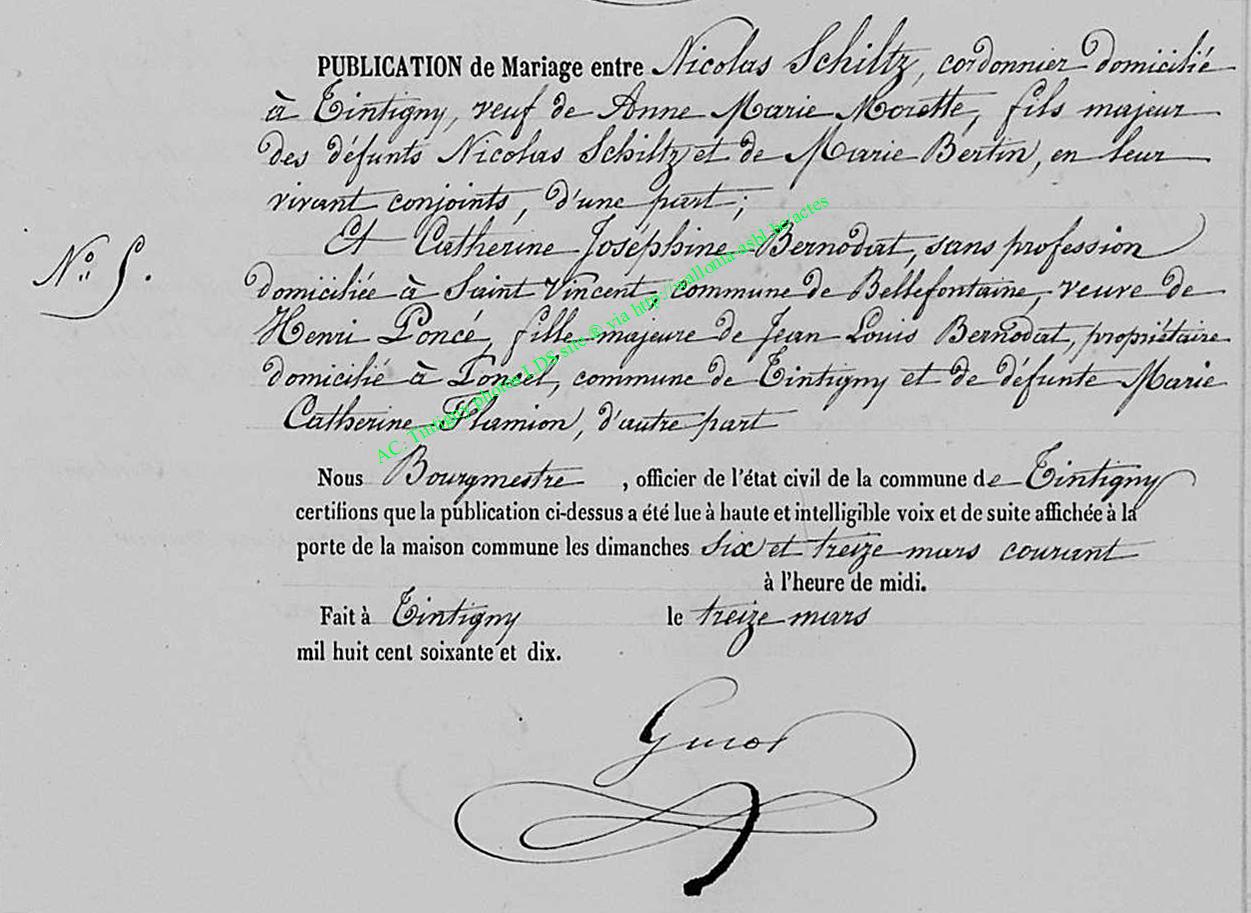 PUBLICATION de Mariage entre Nicolas Schiltz, cordonnier domicilié
à Tintigny, veuf de Anne Marie Moïette, fils majeur
des défunts Nicolas Schiltz et de Marie Bertin, en leur
vivant conjoints, d'une part;
Et Catherine Joséphine Bernodat, sans profession
N° 5.
domiciliée à Saint Vincent, commune de Bellefontaine, veuve de
Henri Poncé, fille majeure de Jean Louis Bernodat, propriétaire
domicilié à Poncel, commune de Tintigny et de défunte Marie
Catherine Flamion, d'autre part
AC: Tintigny photos LDS site ® via http://wallonia-asbl.be/actes
Nous Bourgmestre, officier de l'état civil de la commune de Tintigny
certifions que la publication ci-dessus a été lue à haute et intelligible voix et de suite affichée à la
porte de la maison commune les dimanches six et treize mars courant
à l'heure de midi.
Fait à Tintigny le treize mars
mil huit cent soixante et dix.